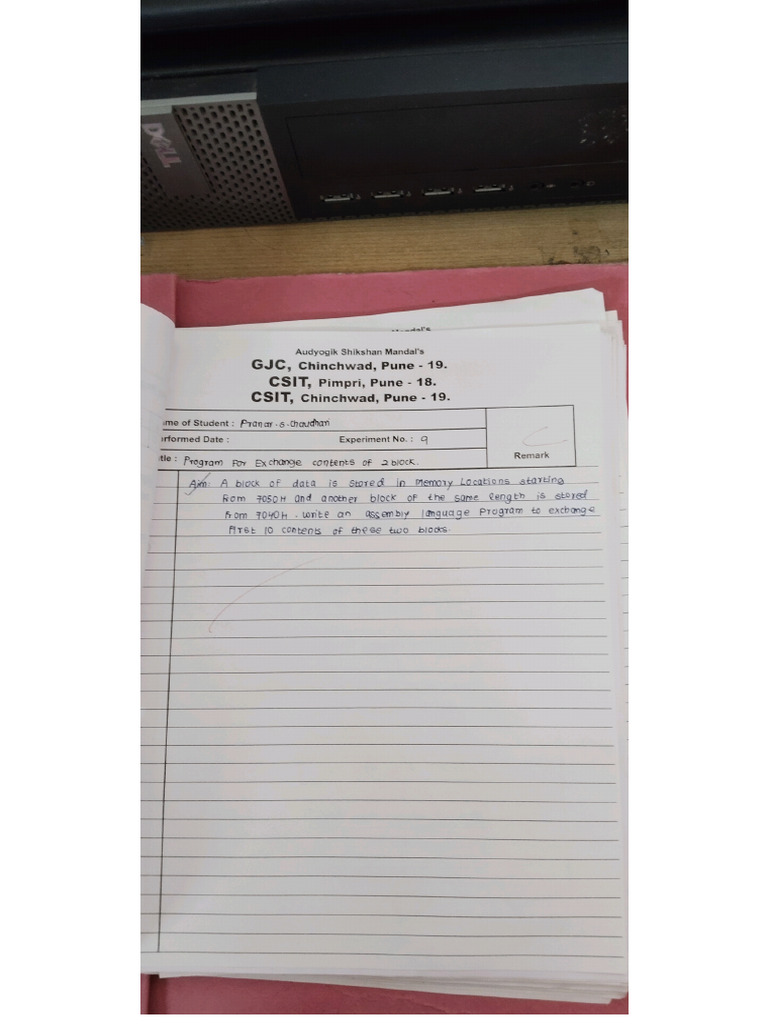 DELL
Mandal's
Audyogik Shikshan Mandal's
GJC, Chinchwad, Pune - 19.
CSIT, Pimpri, Pune - 18.
CSIT, Chinchwad, Pune - 19.
me of Student : Pranav.S.Chaudhari
rformed Date : Experiment No. : 9
Remark
tle : Program For Exchange contents of 2 block.
Aim: A block of data is stored in Memory Locations starting
from 7050H and another block of the same length is stored
from 7040H. write an assembly language Program to exchange
first 10 contents of these two blocks.